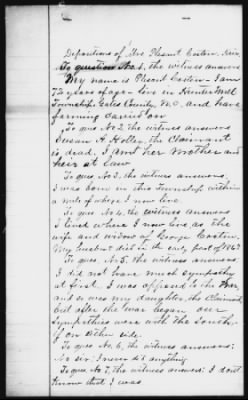 Depositions of Mrs Pleasant Easton, Heir
To question No. 1, the witness answers
My name is Pleasant Easton - I am
72 years of age - live in Hunters Mill
Township Gates County, N.C. and have
farming carried on
To ques No 2, the witness answers
Susan A. Holley, the Claimant
is dead. I am her mother and
heir at law
To ques. No 3, the witness answers,
I was born in this Township within
a mile of where I now live.
To ques. No 4, the witness answers
I lived where I now live as the
wife and widow of George Easton.
My husband died in the early part of 1867
To ques. No. 5, the witness answers,
I did not have much sympathy
at first. I was opposed to the War
and so was my daughter, the Claimant
but after the war began our
sympathies were with the South-
ern side.
To ques. No. 6, the witness answers;
No sir; I never did anything
To ques. No 7, the witness answers: I don't
know that I was